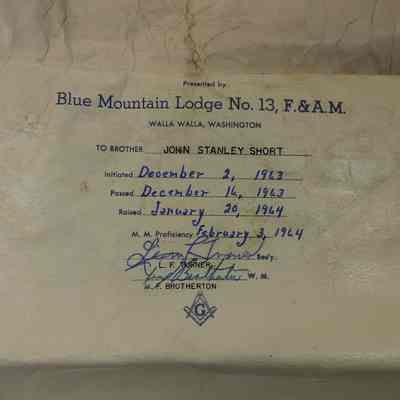 Presented by
Blue Mountain Lodge No. 13, F.&A.M.
WALLA WALLA, WASHINGTON
TO BROTHER JOHN STANLEY SHORT
Initiated December 2, 1963
Passed December 16, 1963
Raised January 20, 1964
M. M. Proficiency February 3, 1964
Sec'y.
L. F. TURNER
W. M.
BROTHERTON
G